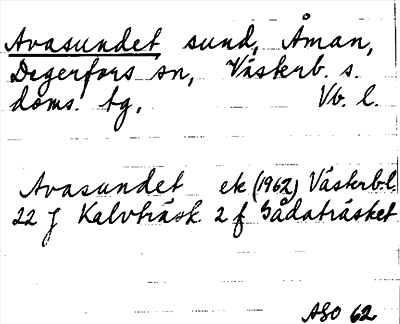 Avasundet sund, Åman,
Degerfors sn, Västerb. s.
doms. tg, Vb. l.
Avasundet ek (1962) Västerb. l.
22 J Kalvträsk 2 f Gådaträsket
ASO 62